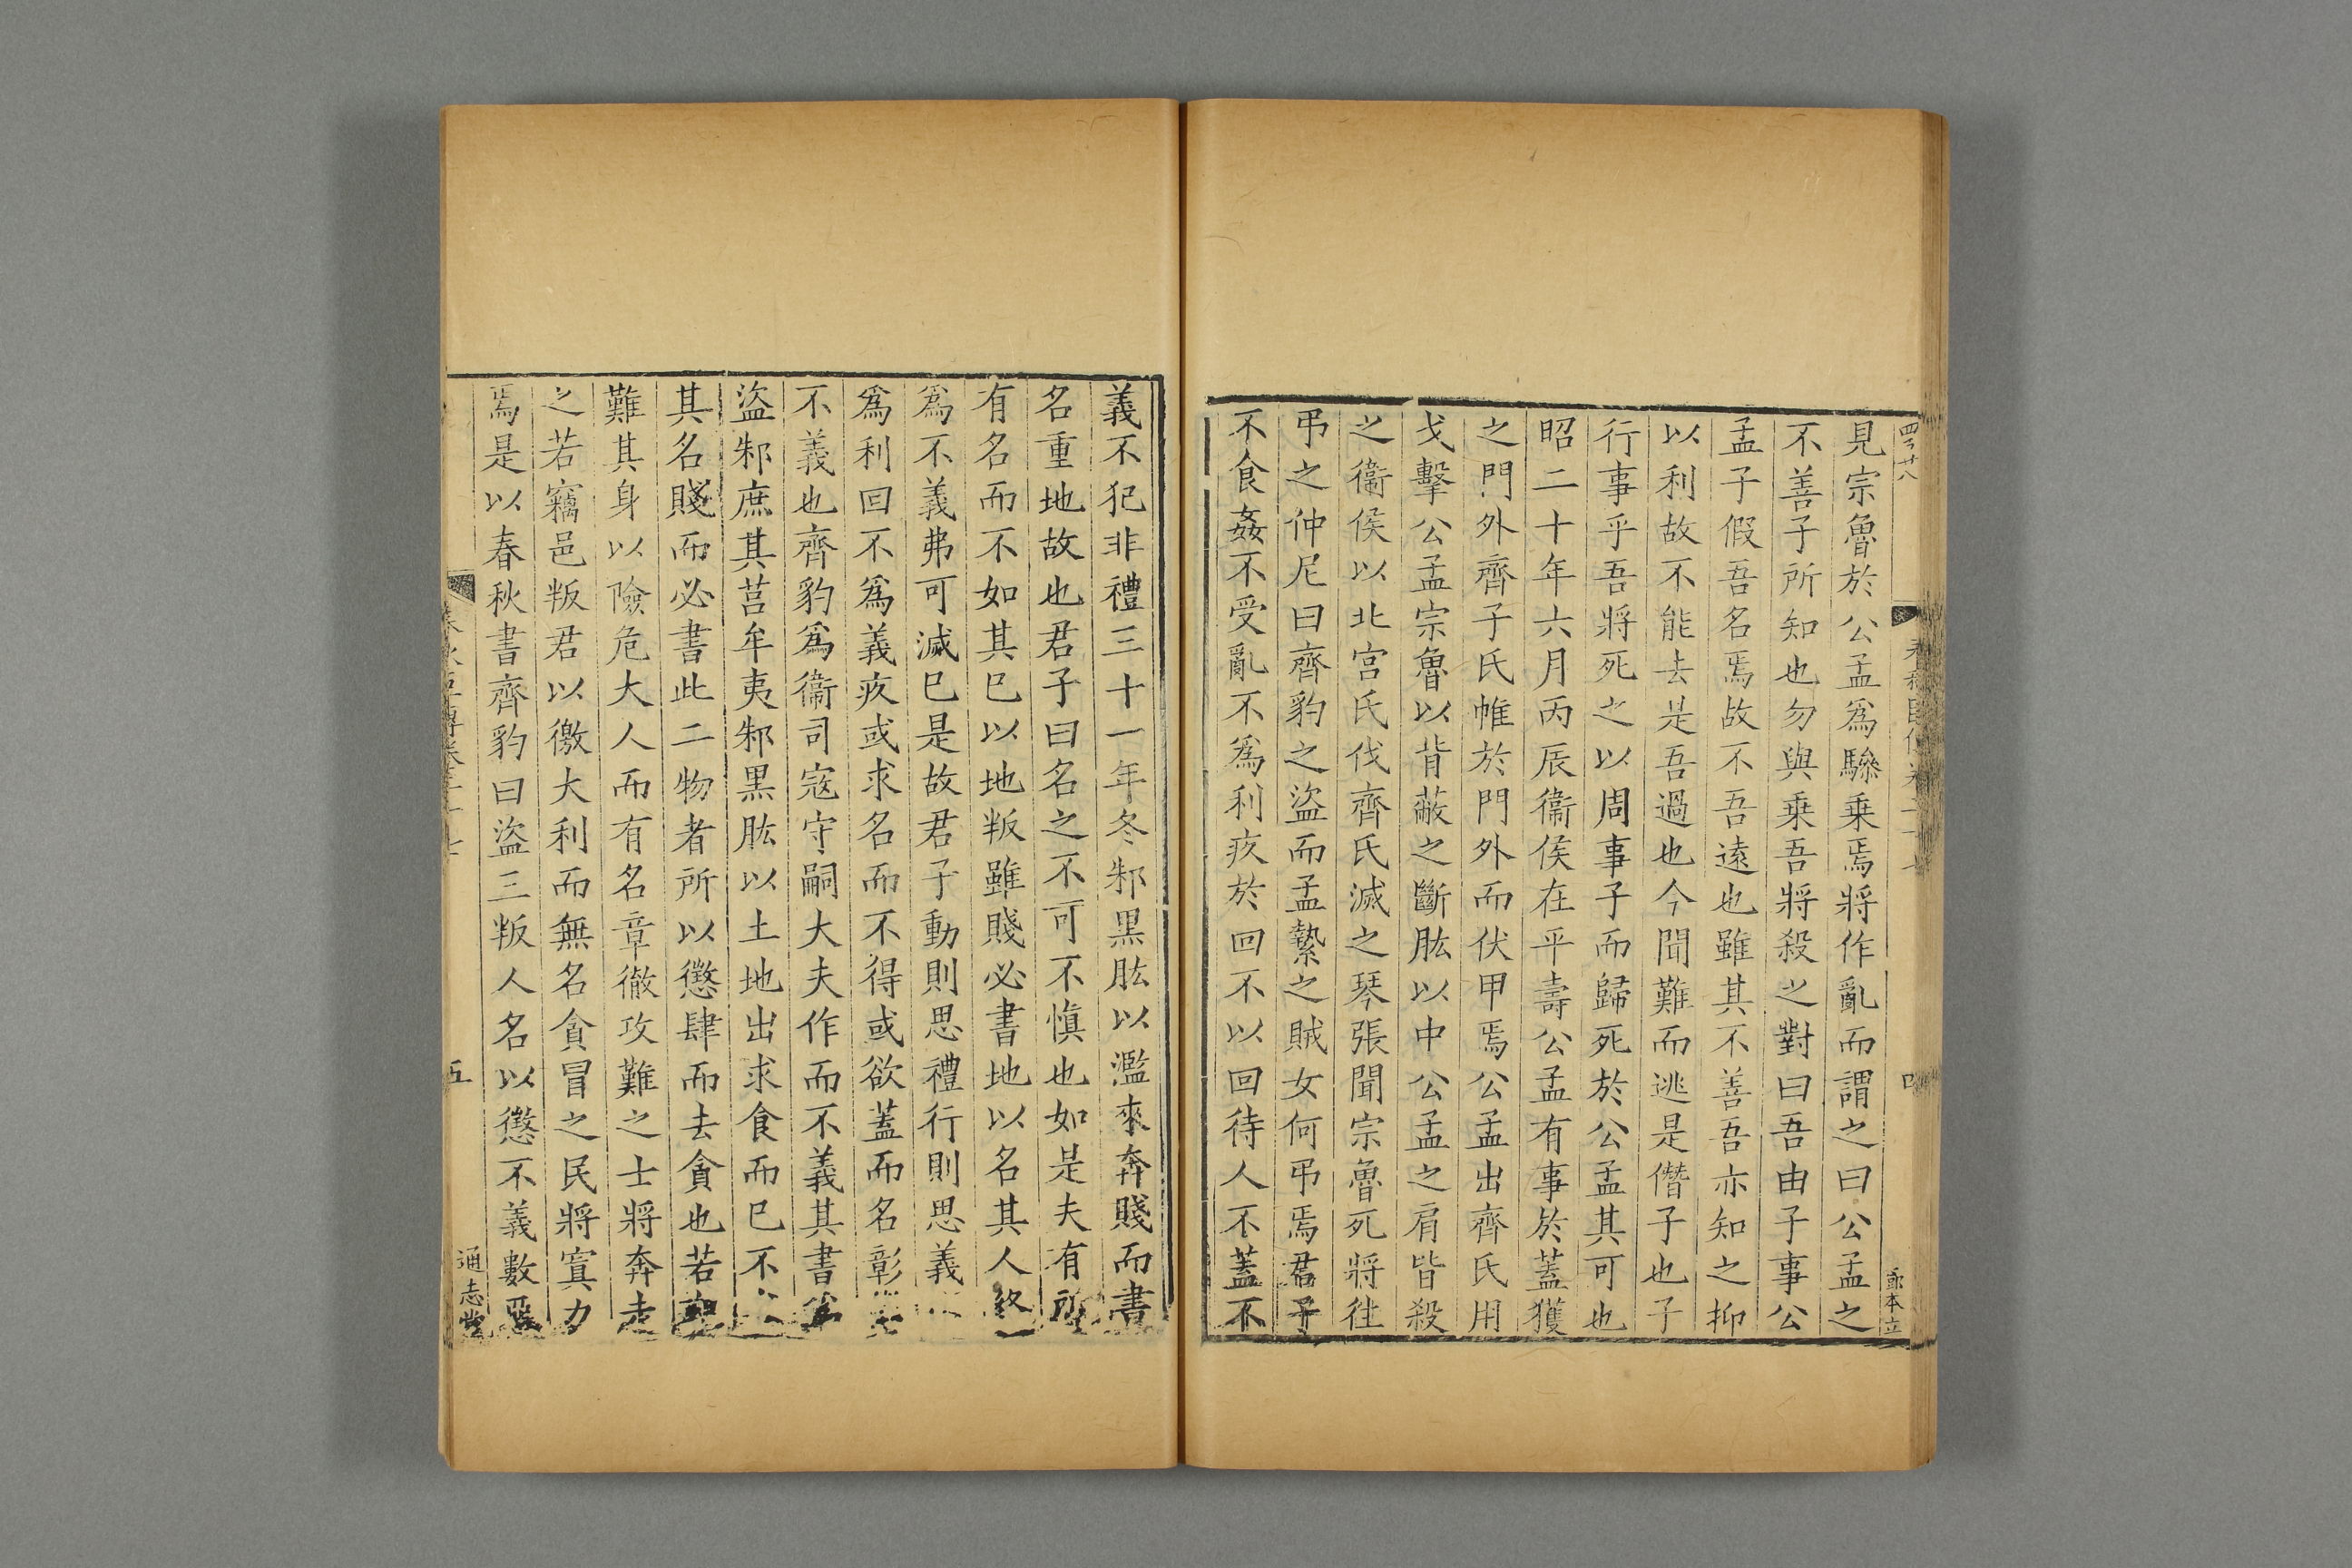 見宗魯於公孟爲驂乗焉將作亂而謂之曰公孟之
不善子所知也勿與乗吾將殺之對曰吾由子事公
孟子假吾名焉故不吾遠也雖其不善吾亦知之抑
以利故不能去是吾過也今聞難而逃是僭子也子
行事乎吾將死之以周事子而歸死於公孟其可也
昭二十年六月丙辰衞侯在平壽公孟有事於蓋獲
之門外齊子氏帷於門外而伏甲焉公孟出齊氏用
戈擊公孟宗魯以背蔽之斷肱以中公孟之肩皆殺
之衞侯以北宫氏伐齊氏滅之琴張聞宗魯死將往
弔之仲尼曰齊豹之盜而孟縶之賊女何弔焉君子
不食姦不受亂不爲利疚於回不以回待人不蓋不
義不犯非禮三十一年冬邾黒肱以濫來奔賤而書
名重地故也君子曰名之不可不慎也如是夫有所
有名而不如其巳以地叛雖賤必書地以名其人終
爲不義弗可滅巳是故君子動則思禮行則思義
爲利回不爲義疚或求名而不得或欲蓋而名彰
不義也齊豹爲衞司寇守嗣大夫作而不義其書爲
盜邾庶其莒牟夷邾黒肱以土地出求食而巳不
其名賤而必書此二物者所以懲肆而去貪也若
難其身以險危大人而有名章徹攻難之士將奔走
之若竊邑叛君以徼大利而無名貪冒之民將寘力
焉是以春秋書齊豹曰盜三叛人名以懲不義數惡
五
通志堂